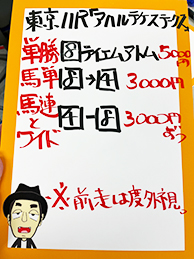 東京11R「アハルテケステークス」
単勝 8 ティエムアトム 5000円
馬単 8→4 3000円
馬連とワイド 4-8 3000円ずつ
※前走は度外視。